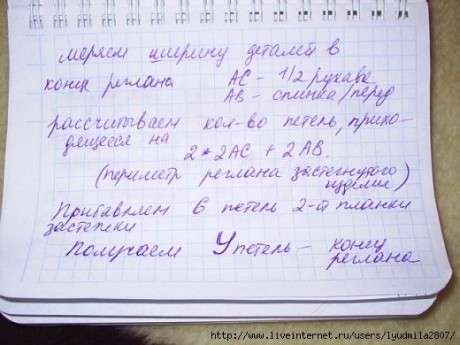 меряем ширину деталей в
конце реглана AC - 1/2 рукава
AB - спинка/перед
рассчитываем кол-во петель, прихо-
дящееся на 2*2AC + 2AB.
(периметр реглана застегнутого
изделия)
Прибавляем 6 петель 2-ой планки
застежки
Получаем У петель - конец
реглана
http://www.liveinternet.ru/users/lyudmila2807/